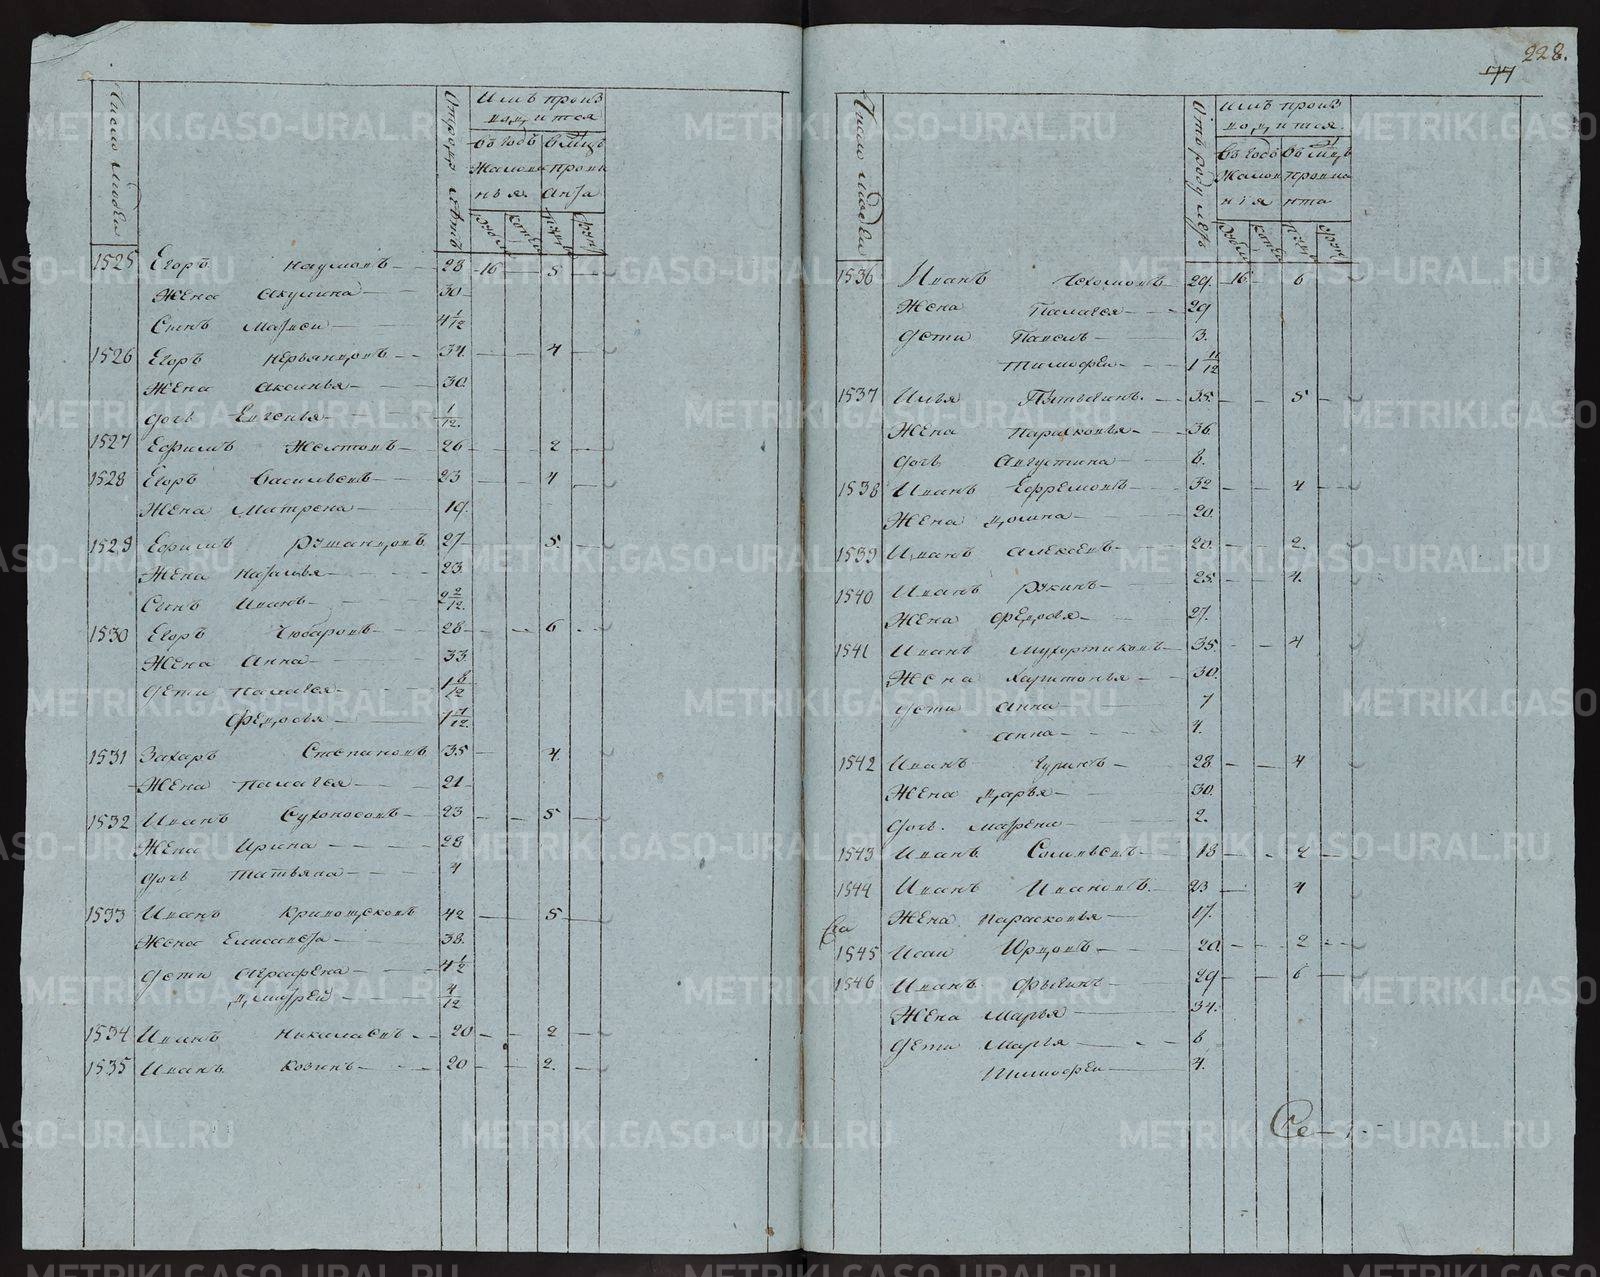 228.
77
Число людей
Отроду летъ
Имъ произ
водится
въ годъ в мцъ
Жалова прови
нья анта
рубли копеи пуды фунт
1525 Егоръ Наумовъ 28 16 5
Жена Акулина 30
Сынъ Матвеи 4 1/12
1526 Егоръ 34. 4
Жена Аксинья 30.
Дочь Евгенья 1/12.
1527 Ефимъ Желтовъ 26 2
1528 Егоръ Васильевъ 23 4
Жена Матрена 19.
1529 Ефимъ Румянцовъ 27 5.
Жена Наталья 23.
Сынъ Иванъ 2 2/12.
1530 Егоръ Чюбаровъ 28 6
Жена Анна 33.
Дети Палагея 1 8/12
Федосья
1531 Захаръ Степановъ 35 4.
Жена Палагея 21
1532 Иванъ Сухоносовъ 23 5
Жена Ирина 28
Дочь Татьяна 4
1533 Иванъ Кривощековъ 42 5
Жена Елисавета 38.
Дети Аграфена 4 1/2
Дмитреи 4/12
1534 Иванъ Николаевъ 20 2
1535 Иванъ Козинъ 20 2.
Число людей
Отъ роду летъ
Имъ произ
водится.
Въ годъ Въ мцъ
Жалов провиа
нiя нта
рубли копеи пуды фунт
1536 Иванъ Чехомовъ 29. 16 6
Жена Палагея 29
Дети Павелъ 3.
Тимофеи 1 11/12
1537 Илья Пятыгинъ. 35. 5
Жена Парасковья 36.
Дочь Августина 8.
1538 Иванъ Ефремовъ 32 4
Жена Домна 20.
1539 Иванъ Алексеевъ 20. 2.
1540 Иванъ Рукинъ 25. 4.
Жена Федосья 27.
1541 Иванъ Мухортиковъ 35. 4
Жена Харитонья 30.
Дети Анна 7
Анна 4.
1542 Иванъ Гуринъ 28. 4
Жена Дарья 30.
Дочь. Матрена 2.
1543 Иванъ Соловьевъ 18 2
1544 Иванъ Ивановъ. 23 4
Жена Парасковья 17.
1545 Исаи Юрдовъ 20. 2
1546 Иванъ Фыгинъ 29 6
Жена Марья 34.
Дети Марья 6
Тимофеи 4.
METRIKI.GASO-URAL.RU